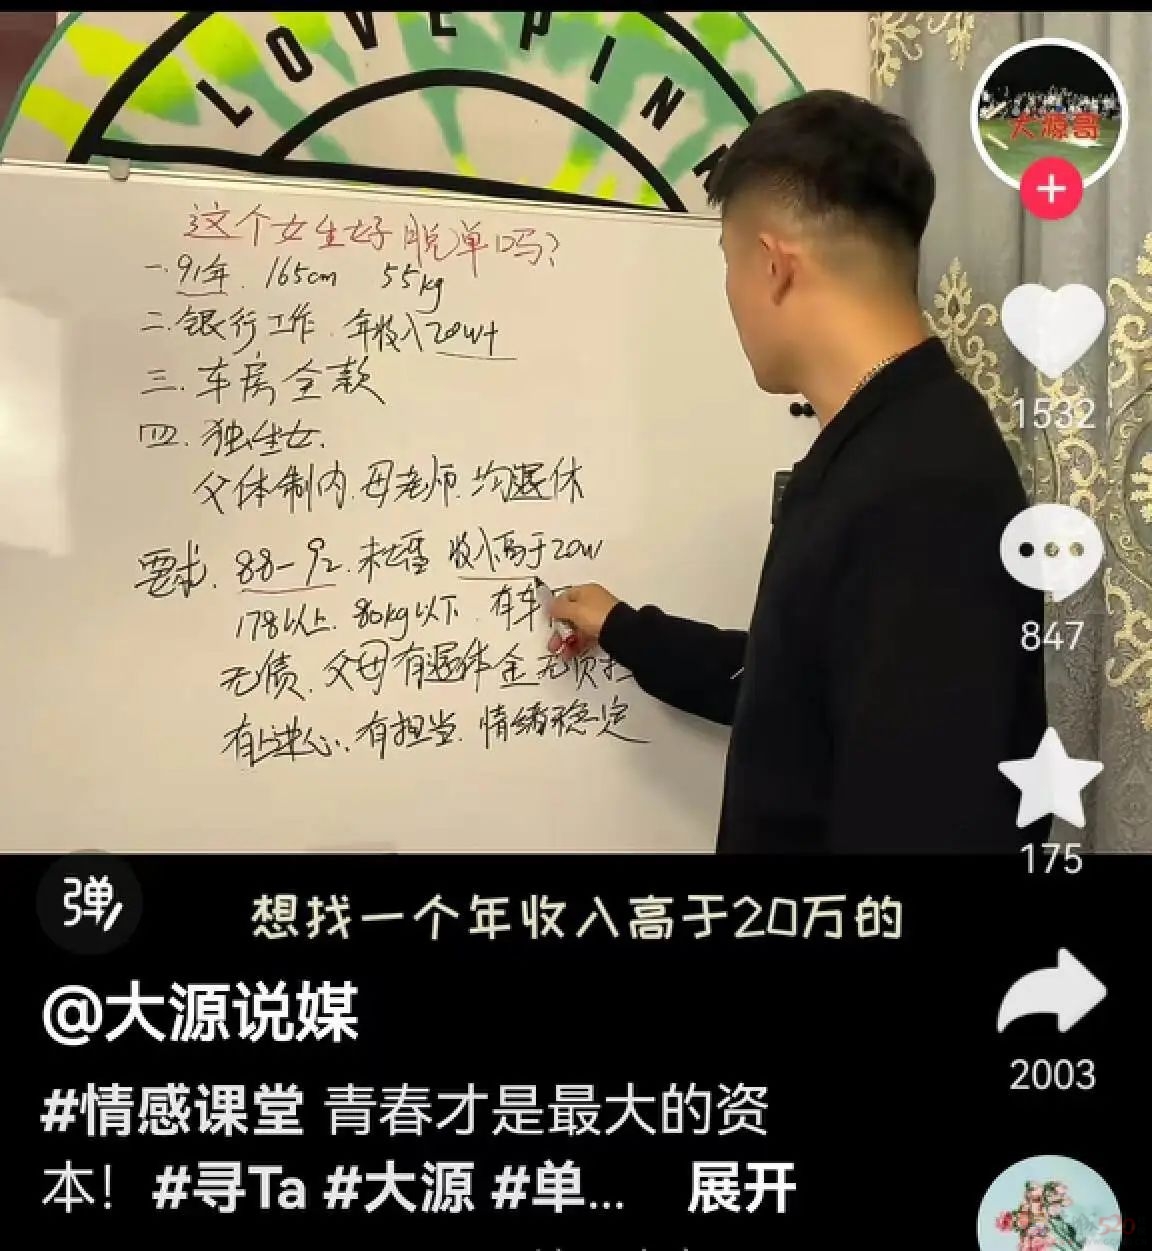 LOVEPIN
大源哥
这个女生好脱单吗?
一.91年. 165cm 55kg
二.银行工作. 年收入20W+
三.车房全款
四.独生女.
父体制内.母老师.均退休
要求.88-92.未婚 收入高于20W
178以上.80kg以下.有车
无债.父母有退休金无负担
有上进心.有担当.情绪稳定
1532
847
175
2003
弹
想找一个年收入高于20万的
@大源说媒
#情感课堂 青春才是最大的资
本! #寻Ta #大源 #单... 展开
520